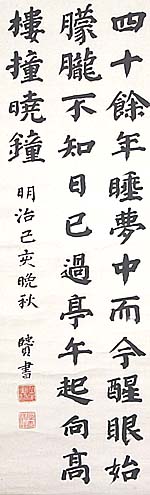 四十餘年睡夢中而今醒眼始
朦朧不知日已過亭午起向高
樓撞曉鐘
明治己亥晚秋
書